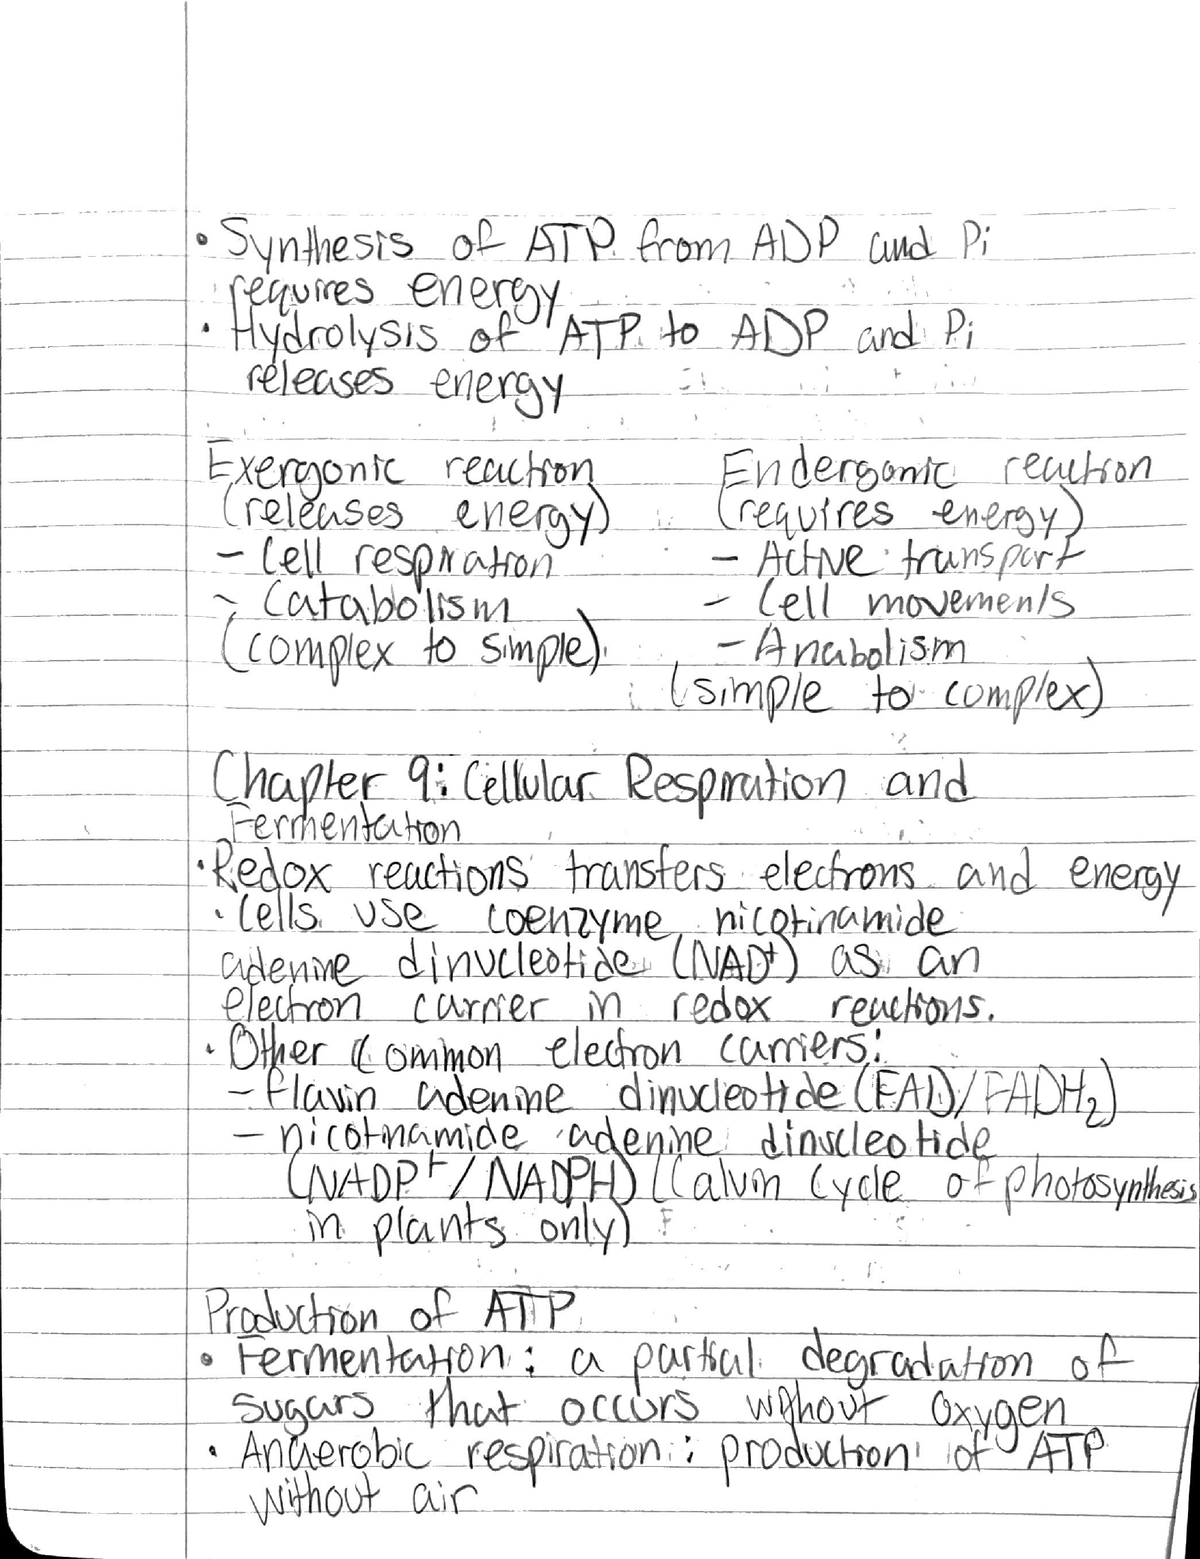 • Synthesis of ATP from ADP and Pi
requires energy
• Hydrolysis of ATP to ADP and Pi
releases energy
Exergonic reaction
(releases energy)
- Cell respiration
- Catabolism
(complex to simple)
Endergonic reaction
(requires energy)
- Active transport
- Cell movements
- Anabolism
(simple to complex)
Chapter 9: Cellular Respiration and
Fermentation
• Redox reactions transfers electrons and energy
• Cells use coenzyme nicotinamide
adenine dinucleotide (NAD⁺) as an
electron carrier in redox reactions.
• Other common electron carriers:
- flavin adenine dinucleotide (FAD/FADH₂)
- nicotinamide adenine dinucleotide
(NADP⁺/NADPH) (Calvin Cycle of photosynthesis
in plants only)
Production of ATP
• Fermentation: a partial degradation of
sugars that occurs without oxygen
• Anaerobic respiration: production of ATP
without air